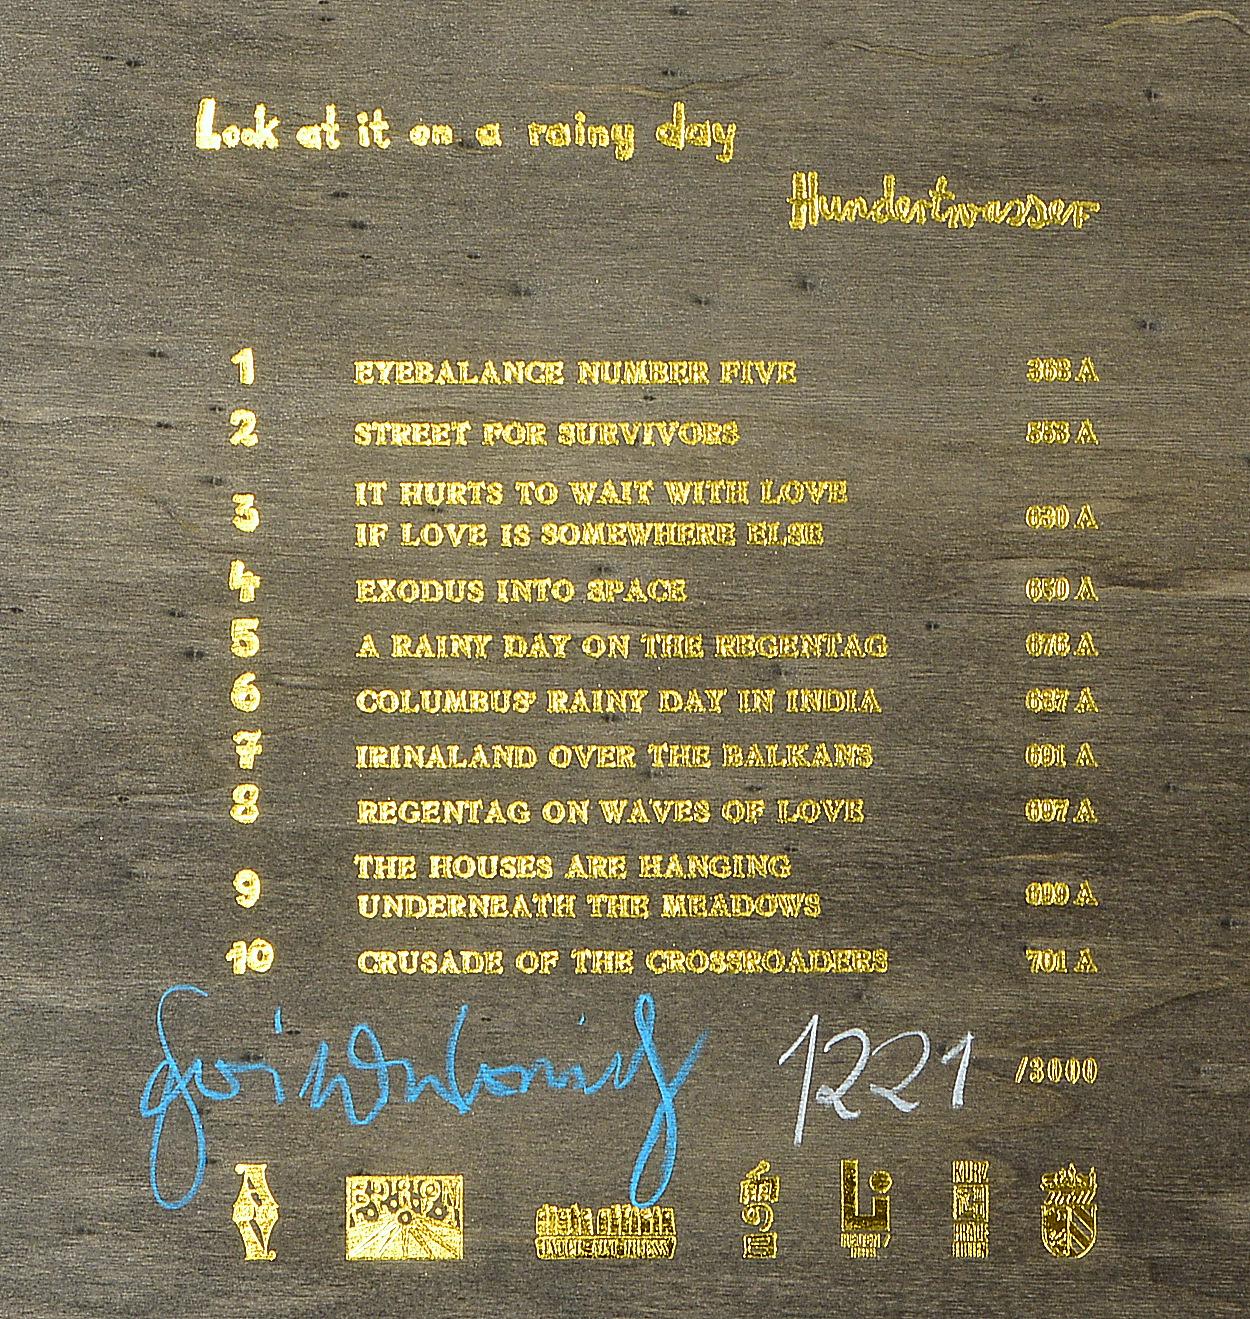 Look at it on a rainy day
Hundertwasser
1 EYEBALANCE NUMBER FIVE 368 A
2 STREET FOR SURVIVORS 553 A
IT HURTS TO WAIT WITH LOVE
3 IF LOVE IS SOMEWHERE ELSE 630 A
4 EXODUS INTO SPACE 650 A
5 A RAINY DAY ON THE REGENTAG 676 A
6 COLUMBUS' RAINY DAY IN INDIA 687 A
7 IRINALAND OVER THE BALKANS 691 A
8 REGENTAG ON WAVES OF LOVE 697 A
THE HOUSES ARE HANGING
9 UNDERNEATH THE MEADOWS 699 A
10 CRUSADE OF THE CROSSROADERS 701 A
1221 /3000